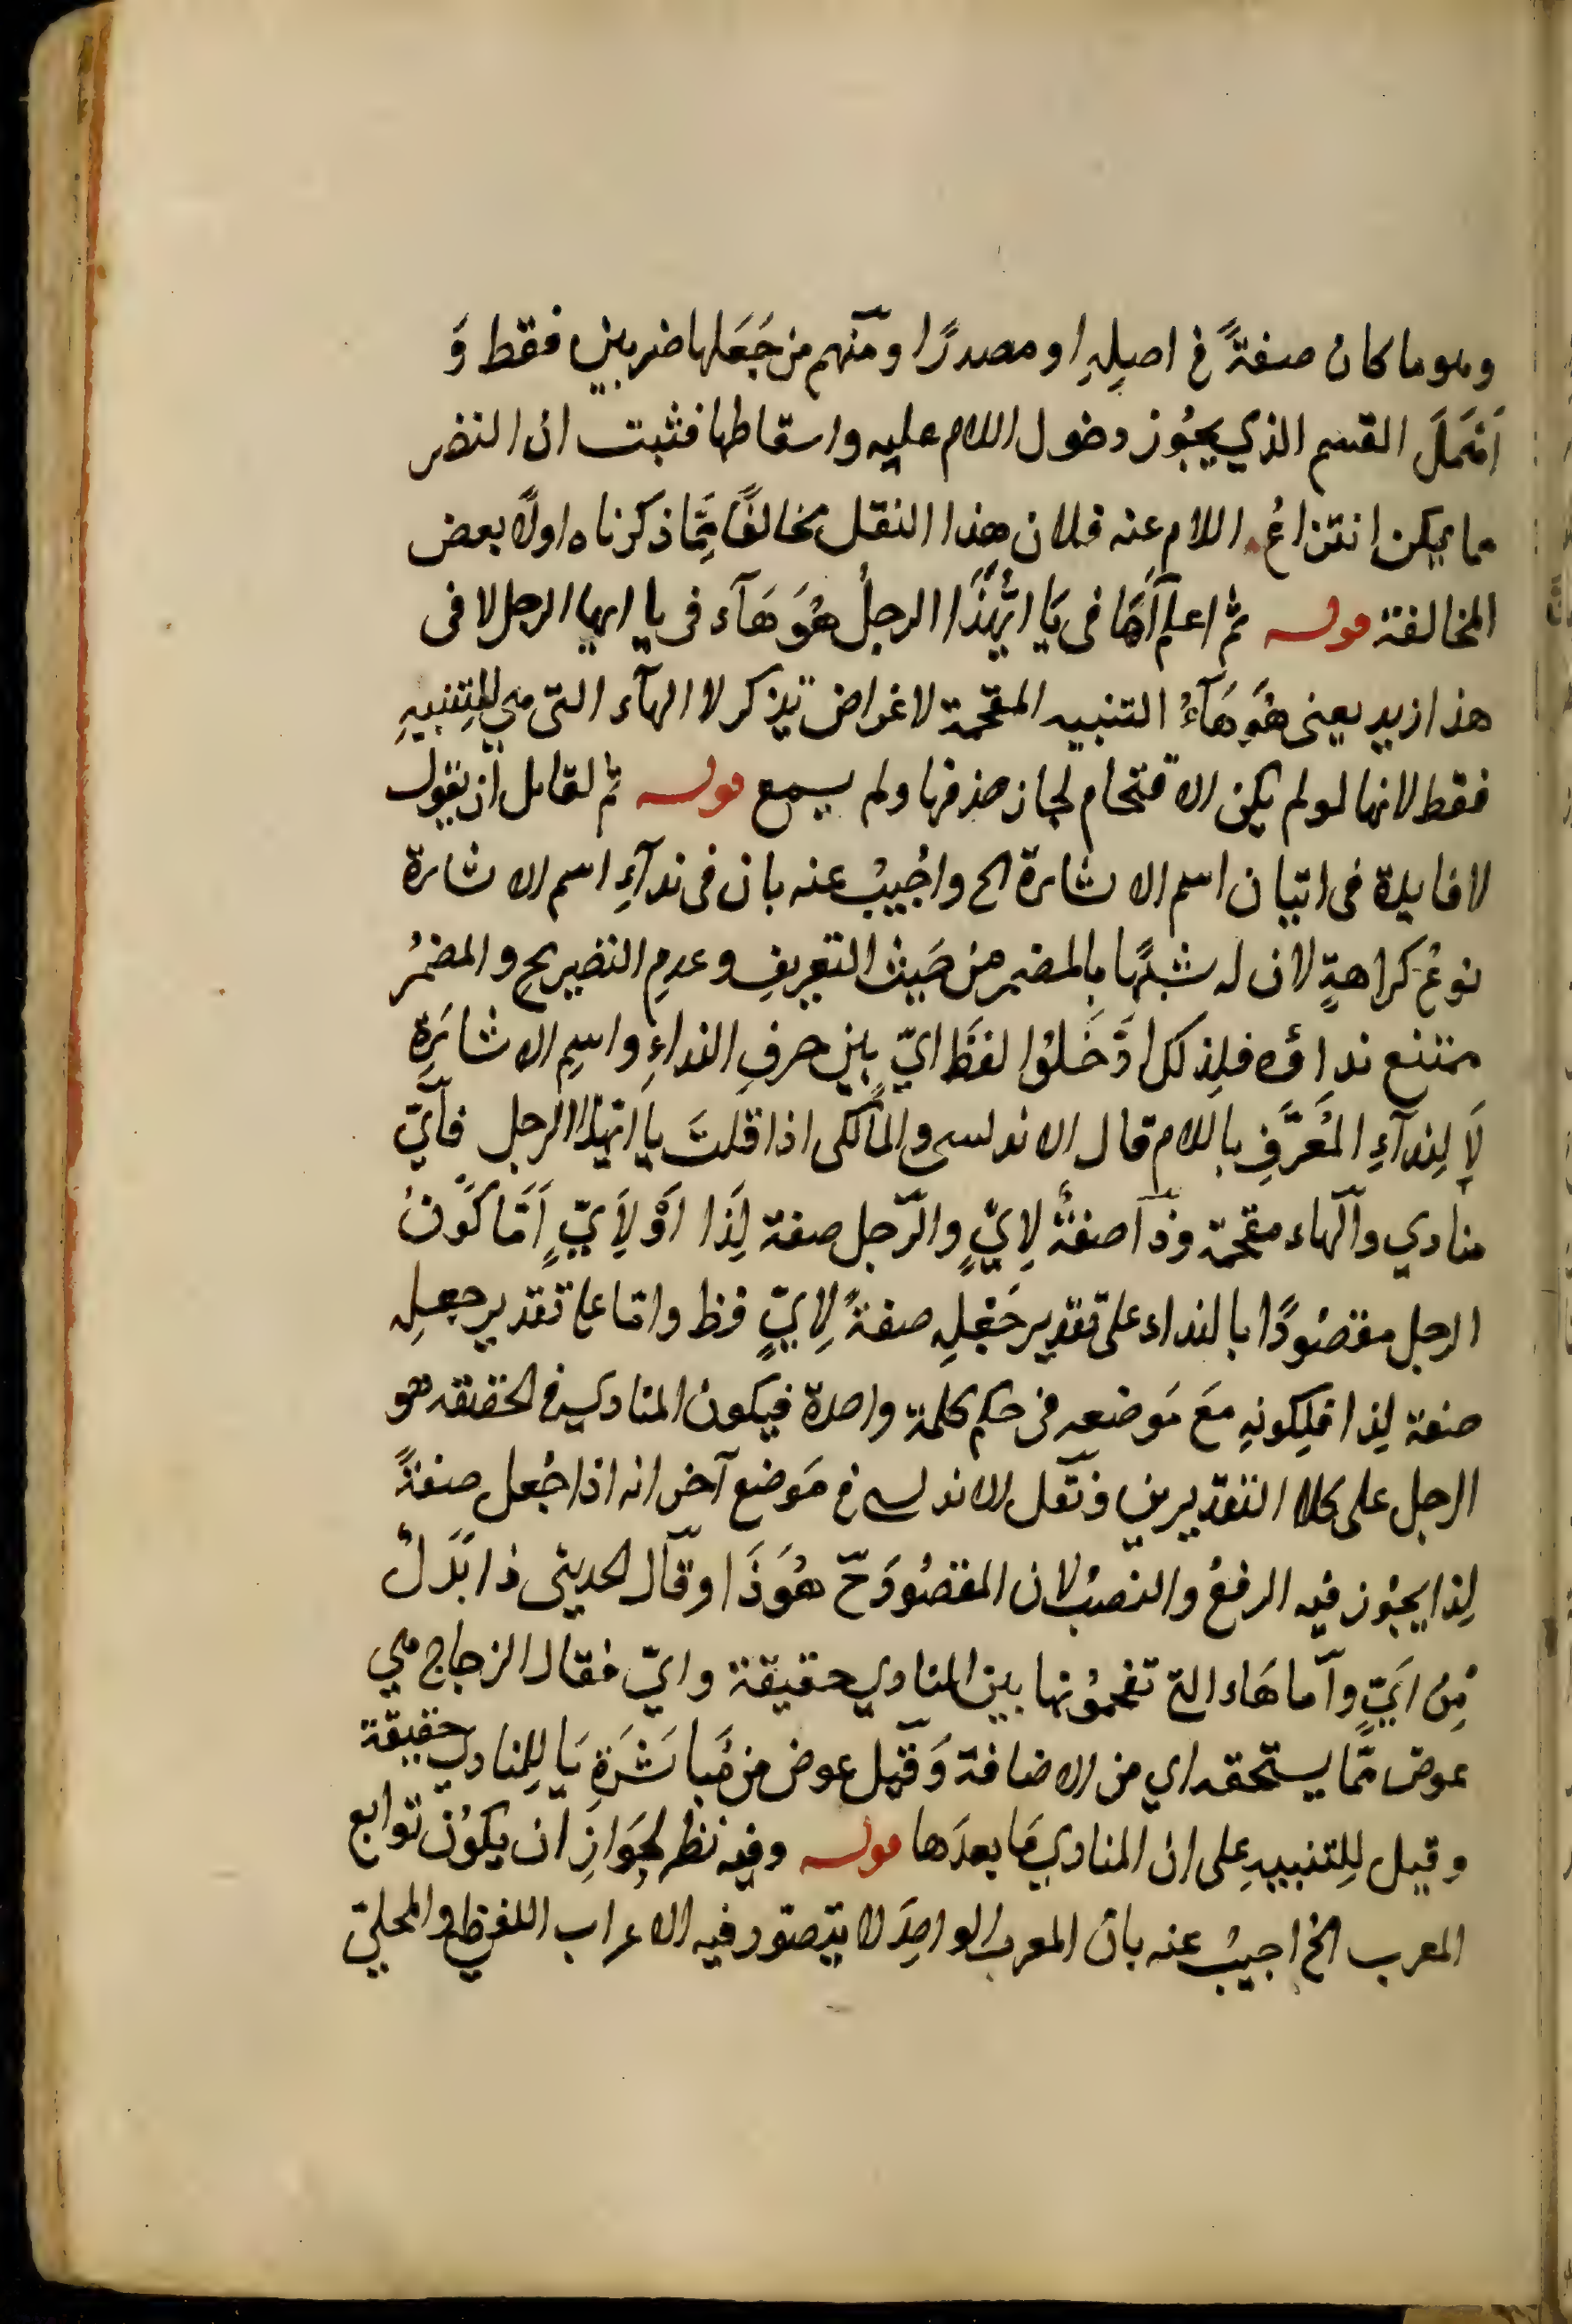 وهو ما كان صفةً في اصلِهِ او مصدرًا ومنهم من جَعَلها ضربين فقط وَ
اَهْمَلَ القسم الذي يجُوز دخول اللام عليه واسقاطها فثبت ان النضر
مما يمكن انتزاعُ اللامِ عنه فلان هذا النقل مخالفًا مِمَّا ذكرناه اولًا بعض
المخالفة قوله ثم اعلم اَنَّهَا فى يَا ايُّهَذَا الرجلُ هُوَ هَآء فى يا ايها الرجل لا فى
هذا زيد يعنى هُوَ هَآءُ التنبيه المقحمة لاغراض تذكر لا الهآء التى هي للتنبيهِ
فقط لانها لو لم يكن الاقتحام لجاز حذفها ولم يسمع قوله ثم لقايل ان يقول
لا فايدة فى اتيان اسم الاشارة الخ واجُيبُ عنه بان فى ندآءِ اسم الاشارة
نوعُ كراهةٍ لان له شبهًا بالمضمر من حَيث التعريفِ وعدمِ التصريح والمضمرُ
ممتنع نداؤه فلِذلك اَدْخَلوُا لفظَ ايّ بين حرفِ النداءِ واسمِ الاشارَةِ
لَا لِندآءِ المُعَرَّفِ باللام قال الاندلسي والمالكى اذا قلتَ يا ايهذا الرجل فايّ
منادي والهاء مقحمة وذا صفةٌ لِايٍّ والرّجل صفة لِذَا اَوْ لِاَيٍّ اَمَّا كَونُ
الرجل مقصُودًا بالنداء على تقدير جَعْلِهِ صفةً لِايٍّ فظ واما على تقدير جعلِه
صفة لِذا فلِكونهِ مَعَ مَوضعه فى حكم كلمة واحدة فيكون المنادي في الحقيقه هو
الرجل على كلا التقديرين ونقل الاندلسى فى مَوضع آخر انه اذا جُعل صفةً
لِذا يجُوز فيه الرفعُ والنصبُ لان المقصُودَ حّ هُوَ ذَا وقال الحديثى ذا بَدَلٌ
مِن ايٍّ واما هَاء التي تقحمُونها بين المنادي حقيقة وايّ فقال الزجاج هي
عوض ممّا يستحقه اي من الاضافة وَقيل عوض من مُبَاشَرَةِ يَا لِلمنادي حقيقة
وقيل لِلتنبيهِ على ان المنادي مَا بعدَها قوله وفيه نظر لجَوازِ ان يكوُن توابع
المعرب الخ اجيبُ عنه بان المعربَ الواحِدَ لا يتصوّر فيه الاعراب اللفظي والمحليّ